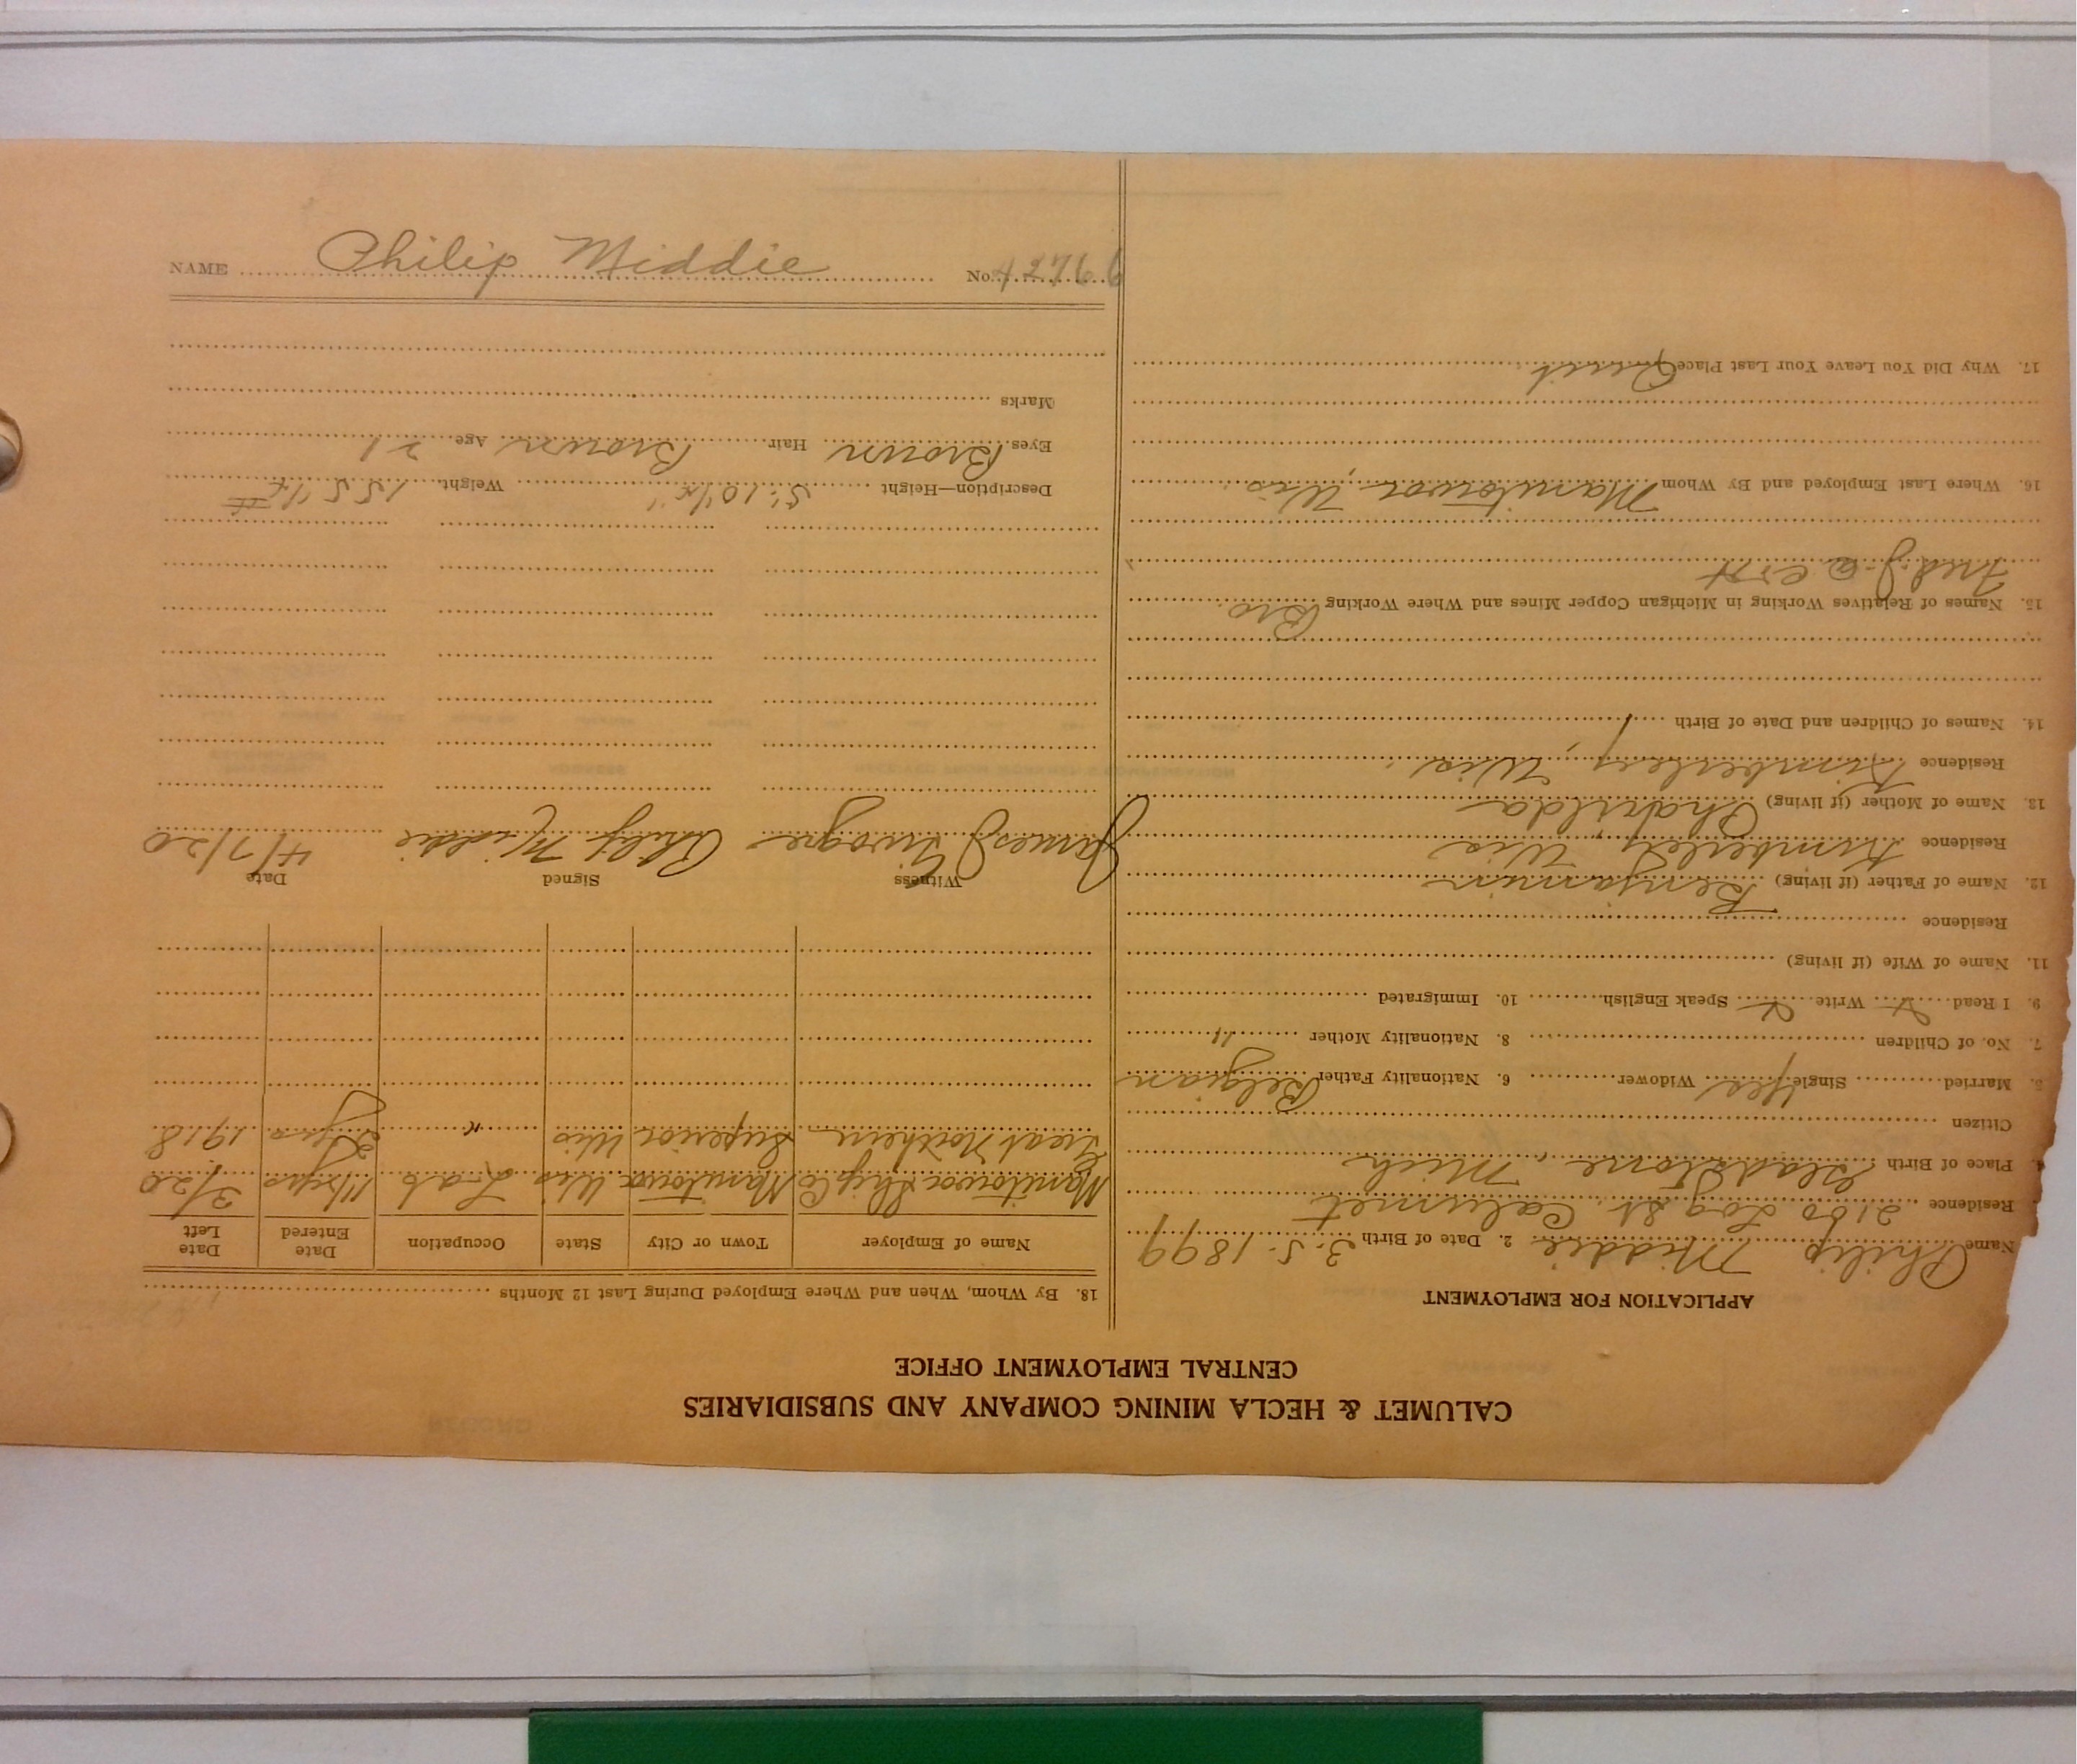 CALUMET & HECLA MINING COMPANY AND SUBSIDIARIES
CENTRAL EMPLOYMENT OFFICE
APPLICATION FOR EMPLOYMENT
Name Philip Middie 2. Date of Birth 3.5.1899
Residence 2160 Log St. Calumet
4. Place of Birth Gladstone, Mich
Citizen
5. Married Single Yes Widower 6. Nationality Father Belgian
7. No. of Children 8. Nationality Mother "
9. I Read Write Speak English 10. Immigrated
11. Name of Wife (if living)
Residence
12. Name of Father (if living) Benjamin
Residence Kimberley, Wis
13. Name of Mother (if living)
Residence Kimberley, Wis
14. Names of Children and Date of Birth /
15. Names of Relatives Working in Michigan Copper Mines and Where Working Bro
Fred J.
16. Where Last Employed and By Whom Manitowoc, Wis
17. Why Did You Leave Your Last Place Quit
18. By Whom, When and Where Employed During Last 12 Months
Name of Employer Town or City State Occupation Date Entered Date Left
Manitowoc Ship Co Manitowoc Wis Lab 3/20
Great Northern Superior Wis " 1918
Witness Signed Date
James J. Philip Middie 4/7/20
Description—Height 5' 10 1/4" Weight 155 1/4 #
Eyes Brown Hair Brown Age 21
Marks
NAME Philip Middie No. 42766